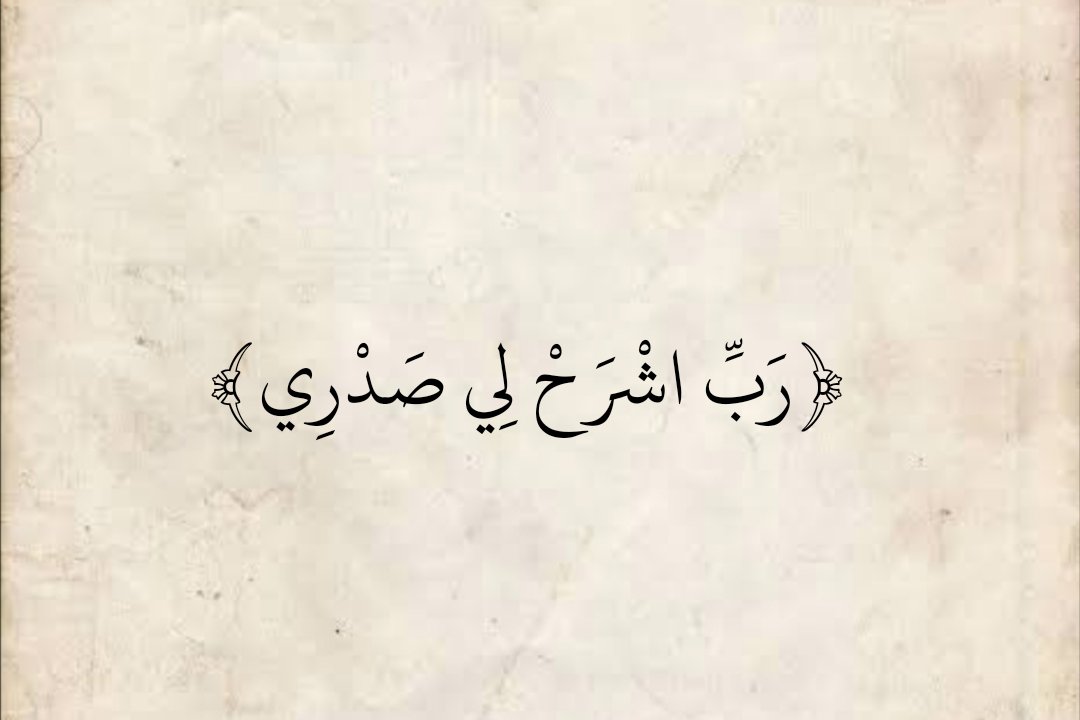 ﴿ رَبِّ اشْرَحْ لِي صَدْرِي ﴾